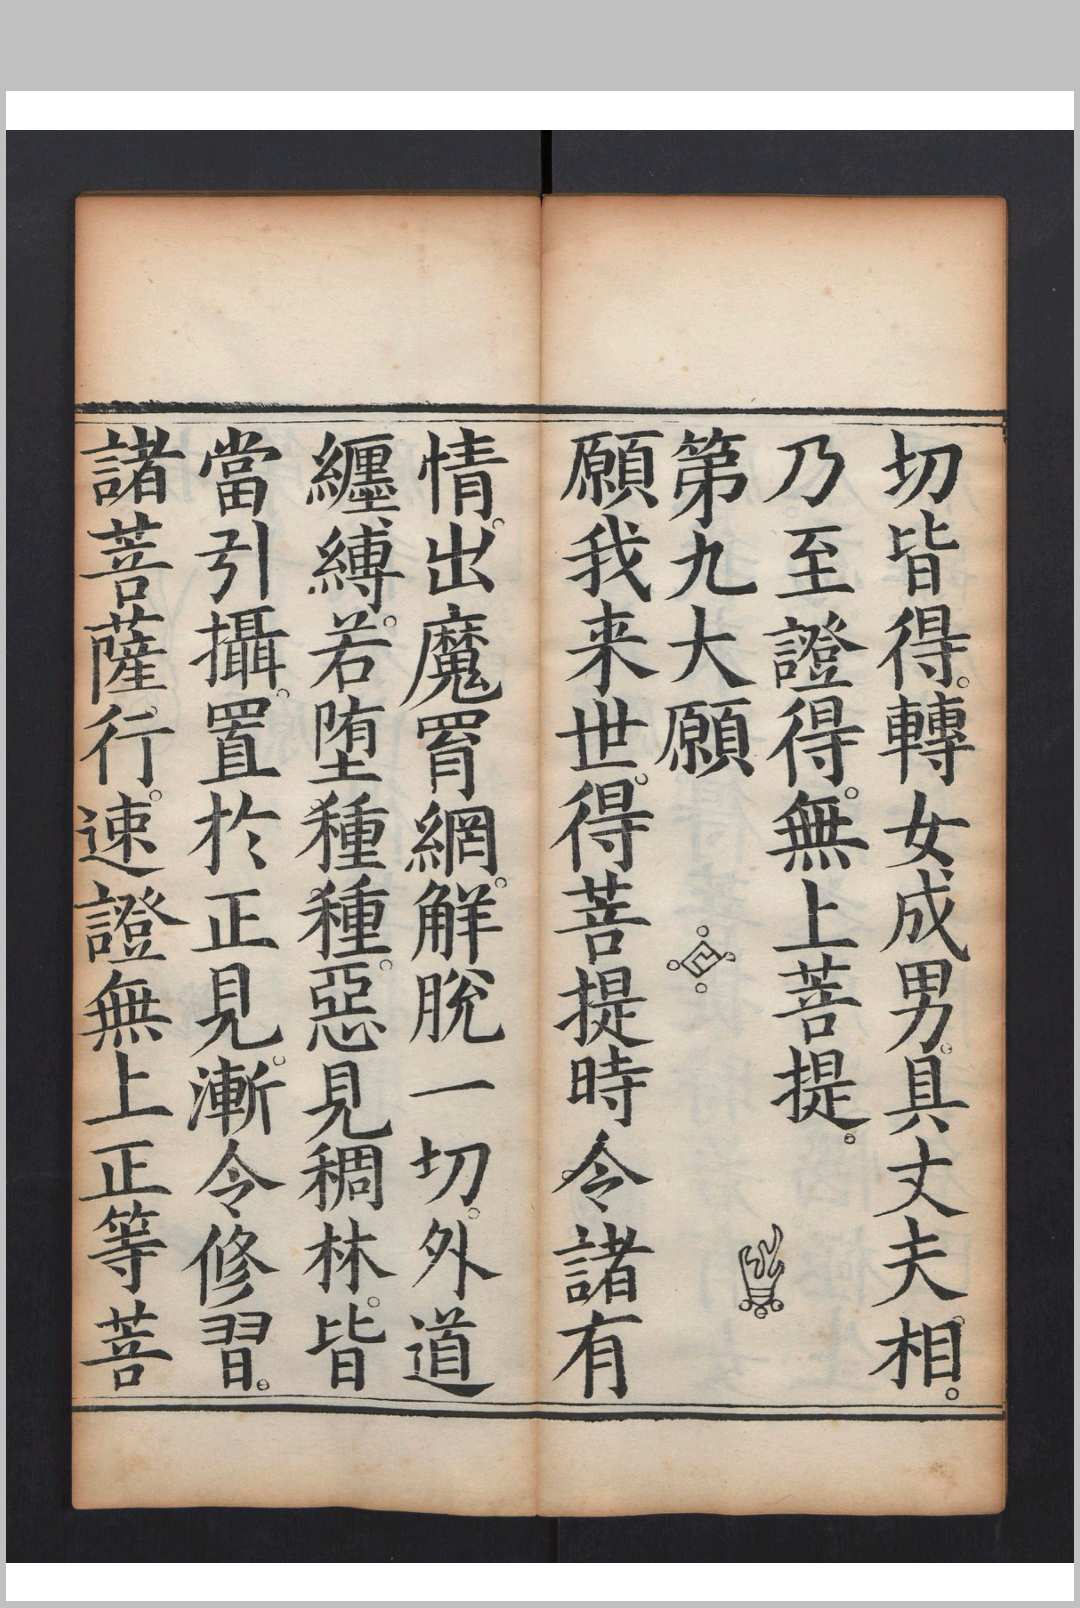 切皆得。轉女成男。具丈夫相。
乃至證得。無上菩提。
第九大願
願我来世。得菩提時。令諸有
情。出魔罥網。解脫一切。外道
纏縛。若堕種種。惡見稠林。皆
當引攝。置於正見。漸令修習。
諸菩薩行。速證無上正等菩